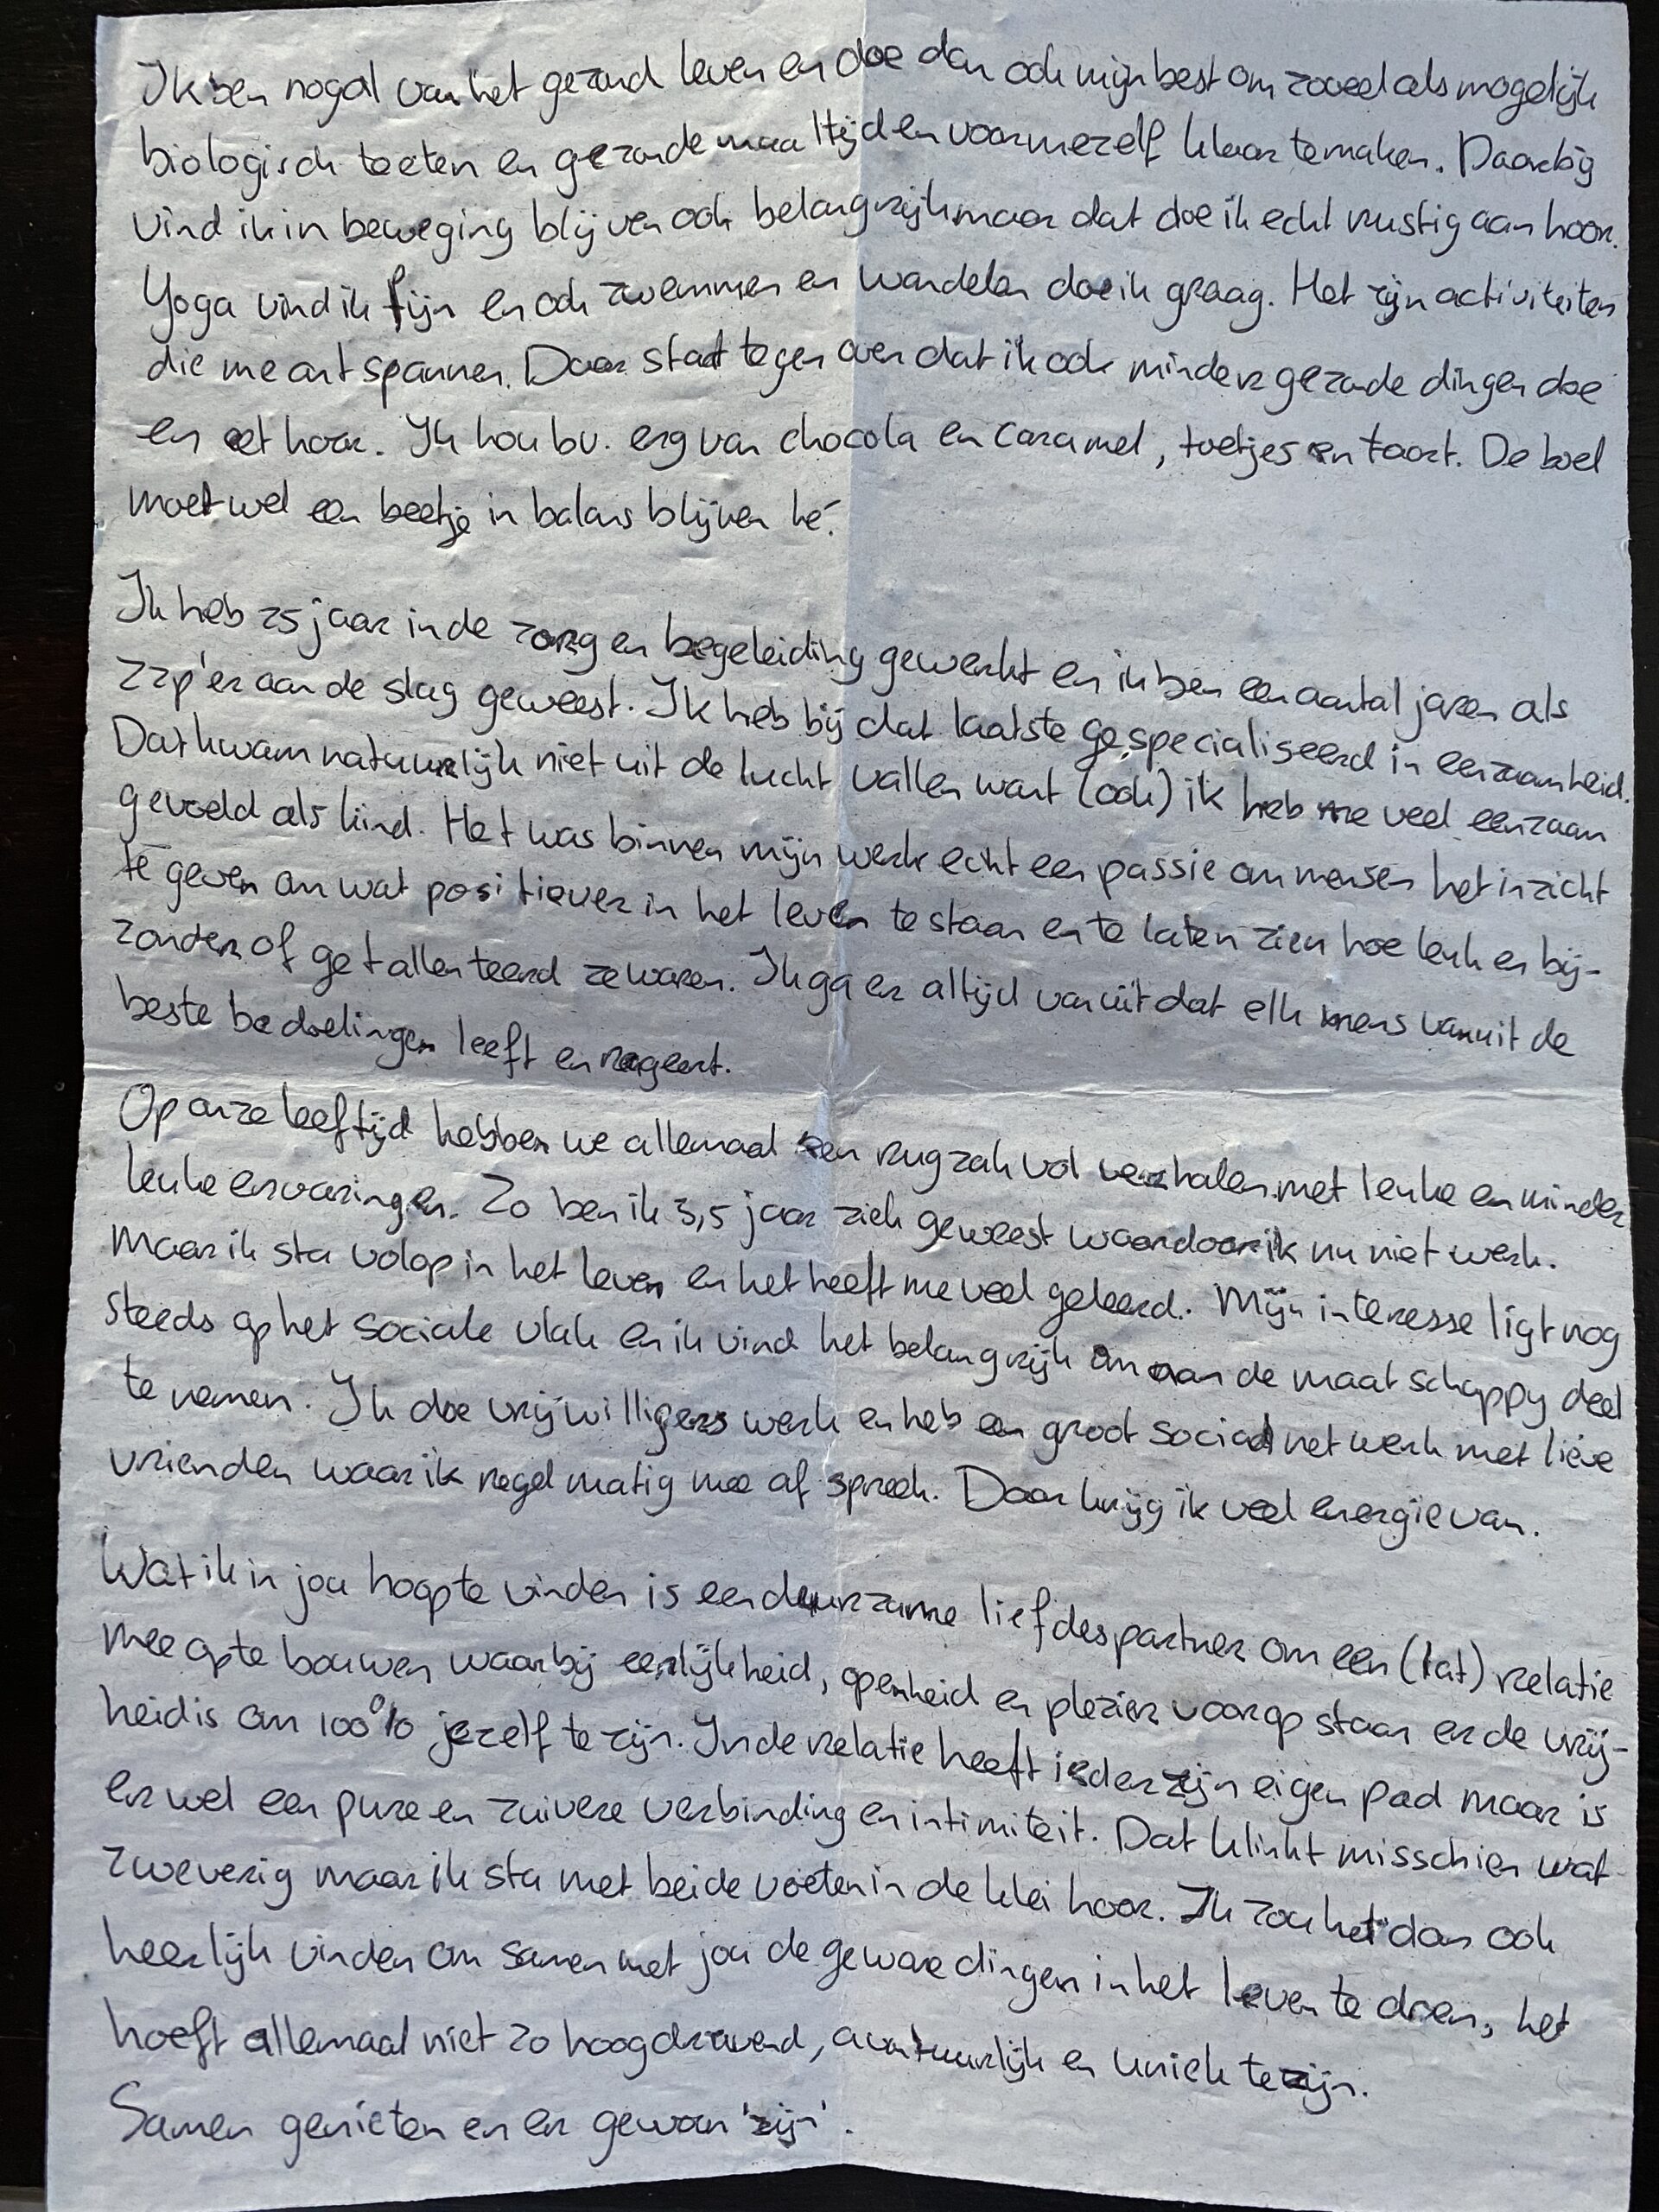 Ik ben nogal van het gezond leven en doe dan ook mijn best om zoveel als mogelijk
biologisch te eten en gezonde maaltijden voor mezelf klaar te maken. Daarbij
vind ik in beweging blijven ook belangrijk maar dat doe ik echt rustig aan hoor.
Yoga vind ik fijn en ook zwemmen en wandelen doe ik graag. Het zijn activiteiten
die me ontspannen. Daar staat tegen over dat ik ook minder gezonde dingen doe
en eet hoor. Ik hou bv. erg van chocola en caramel, toetjes en taart. De boel
moet wel een beetje in balans blijven hé.
Ik heb 25 jaar in de zorg en begeleiding gewerkt en ik ben een aantal jaren als
zzp'er aan de slag geweest. Ik heb bij dat laatste gespecialiseerd in eenzaamheid.
Dat kwam natuurlijk niet uit de lucht vallen want (ook) ik heb me veel eenzaam
gevoeld als kind. Het was binnen mijn werk echt een passie om mensen het inzicht
te geven om wat positiever in het leven te staan en te laten zien hoe leuk en bij-
zonder of getallenteerd ze waren. Ik ga er altijd vanuit dat elk mens vanuit de
beste bedoelingen leeft en reageert.
Op onze leeftijd hebben we allemaal een rugzak vol verhalen met leuke en minder
leuke ervaringen. Zo ben ik 3,5 jaar ziek geweest waardoor ik nu niet werk.
Maar ik sta volop in het leven en het heeft me veel geleerd. Mijn interesse ligt nog
steeds op het sociale vlak en ik vind het belangrijk om aan de maatschappy deel
te nemen. Ik doe vrijwilligers werk en heb een groot sociaal netwerk met lieve
vrienden waar ik regelmatig mee af spreek. Daar krijg ik veel energie van.
Wat ik in jou hoop te vinden is een duurzame liefdespartner om een (lat) relatie
mee op te bouwen waarbij eerlijkheid, openheid en plezier voorop staan en de vrij-
heid is om 100% jezelf te zijn. In de relatie heeft ieder zijn eigen pad maar is
er wel een pure en zuivere verbinding en intimiteit. Dat klinkt misschien wat
zweverig maar ik sta met beide voeten in de klei hoor. Ik zou het dan ook
heerlijk vinden om samen met jou de gewone dingen in het leven te doen, het
hoeft allemaal niet zo hoogdravend, avontuurlijk en uniek te zijn.
Samen genieten en er gewoon 'zijn'.